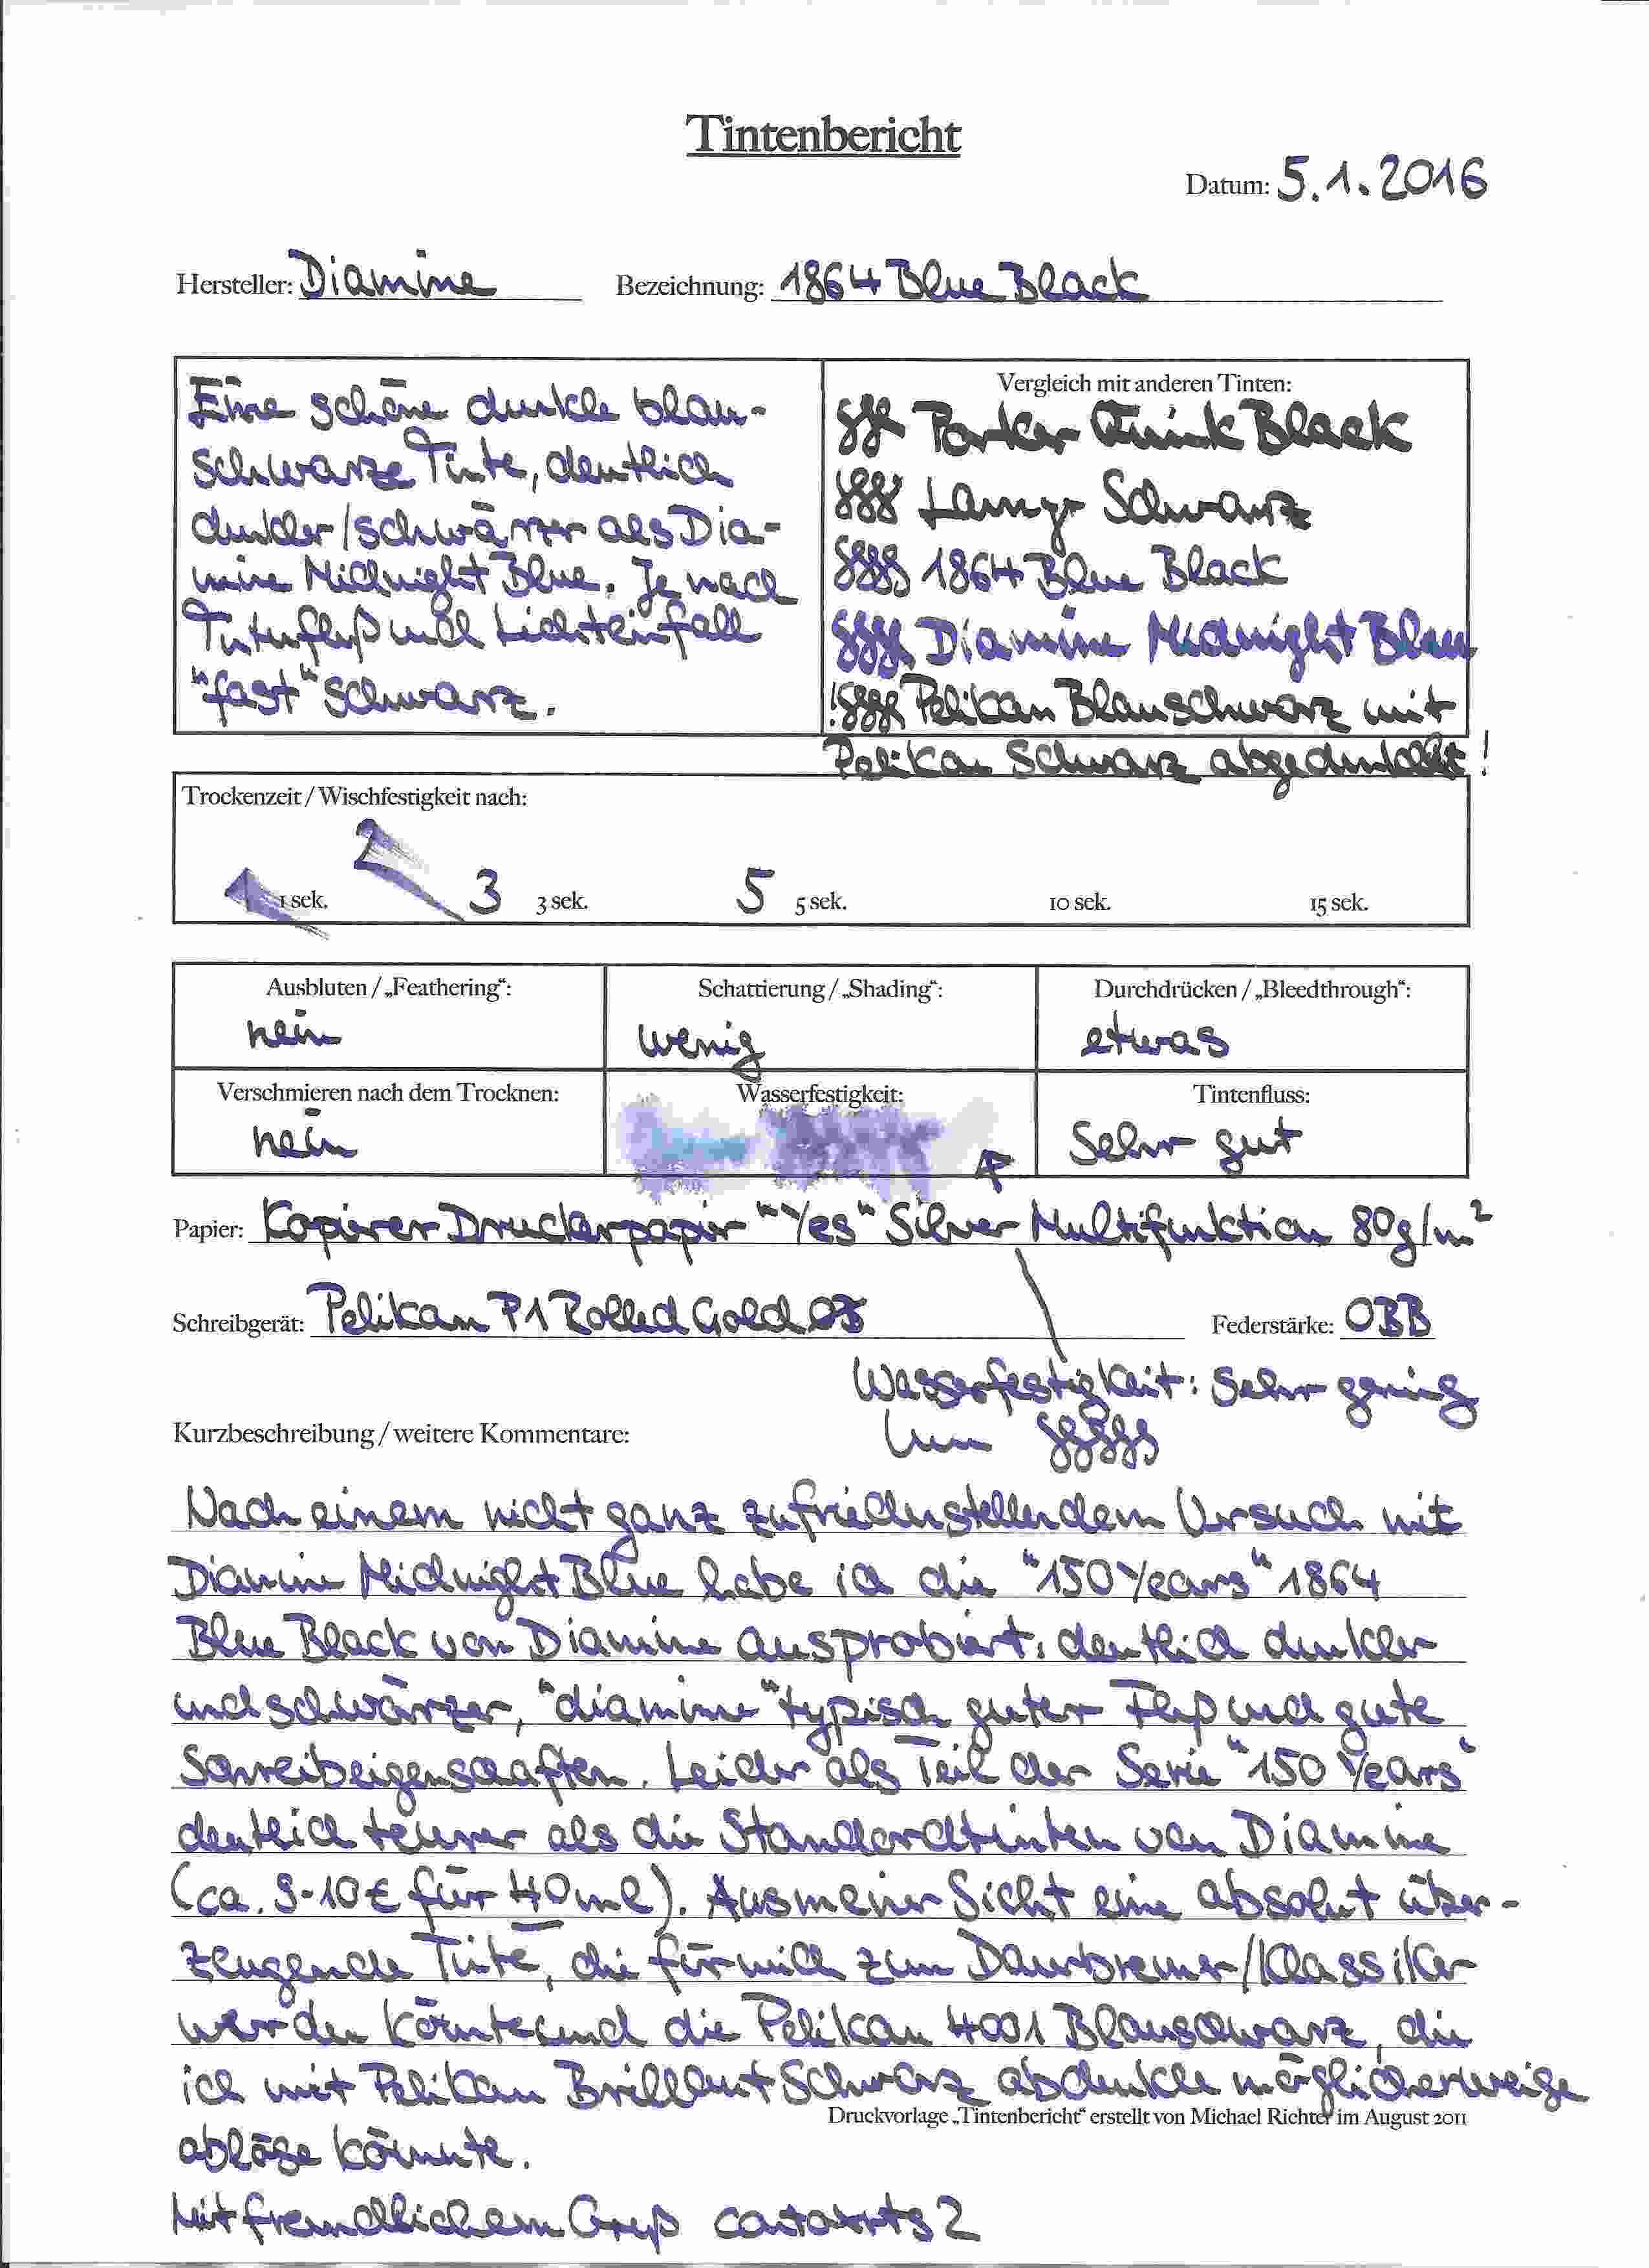 Tintenbericht
Datum: 5.1.2016
Hersteller: Diamine Bezeichnung: 1864 Blue Black
Eine schöne dunkle blau-
schwarze Tinte, deutlich
dunkler/schwärzer als Dia-
mine Midnight Blue. Je nach
Tintenfluß und Lichteinfall
"fast" schwarz.
Vergleich mit anderen Tinten:
Parker Quink Black
Lamy Schwarz
1864 Blue Black
Diamine Midnight Blau
Pelikan Blauschwarz mit
Pelikan Schwarz abgedunkelt!
Trockenzeit / Wischfestigkeit nach:
2
1 1 sek. 3 3 sek. 5 5 sek. 10 sek. 15 sek.
Ausbluten / „Feathering“: Schattierung / „Shading“: Durchdrücken / „Bleedthrough“:
nein wenig etwas
Verschmieren nach dem Trocknen: Wasserfestigkeit: Tintenfluss:
nein sehr gut
Papier: Kopierer Druckerpapier "Yes" Silver Multifunktion 80g/m²
Schreibgerät: Pelikan P1 Rolled Gold Federstärke: OBB
Wasserfestigkeit: sehr gering
Kurzbeschreibung / weitere Kommentare:
Nach einem nicht ganz zufriedenstellendem Versuch mit
Diamine Midnight Blue habe ich die "150 Years" 1864
Blue Black von Diamine ausprobiert: deutlich dunkler
und schwärzer, "diamine" typisch guter Fluß und gute
Schreibeigenschaften. Leider als Teil der Serie "150 Years"
deutlich teurer als die Standardtinten von Diamine
(ca. 9-10€ für 40ml). Aus meiner Sicht eine absolut über-
zeugende Tinte, die für mich zum Dauerbrenner/Klassiker
werden könnte und die Pelikan 4001 Blauschwarz, die
ich mit Pelikan Brillant Schwarz abdunkle möglicherweise
Druckvorlage „Tintenbericht“ erstellt von Michael Richter im August 2011
ablöse könnte.
Mit freundlichem Gruß